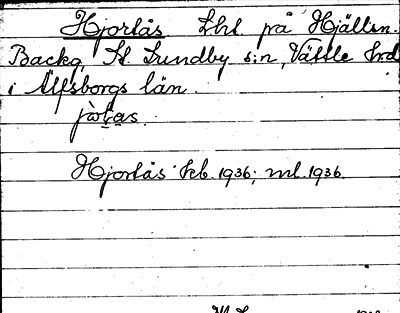 Hjortås Lht. på Hjälln.
Backa, St. Lundby s:n, Vättle hrd
i Älfsborgs län.
jòṭas.
Hjortås Kb. 1936; ml. 1936.